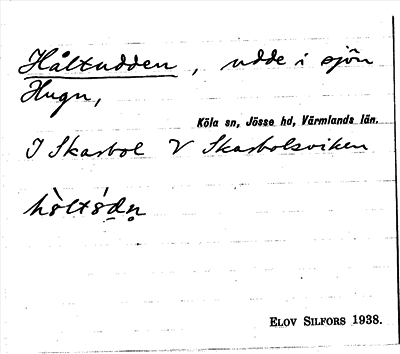 Håltudden, udde i sjön
Hugn,
Köla sn, Jösse hd, Värmlands län.
I Skarbol V Skarbolsviken
Elov Silfors 1938.